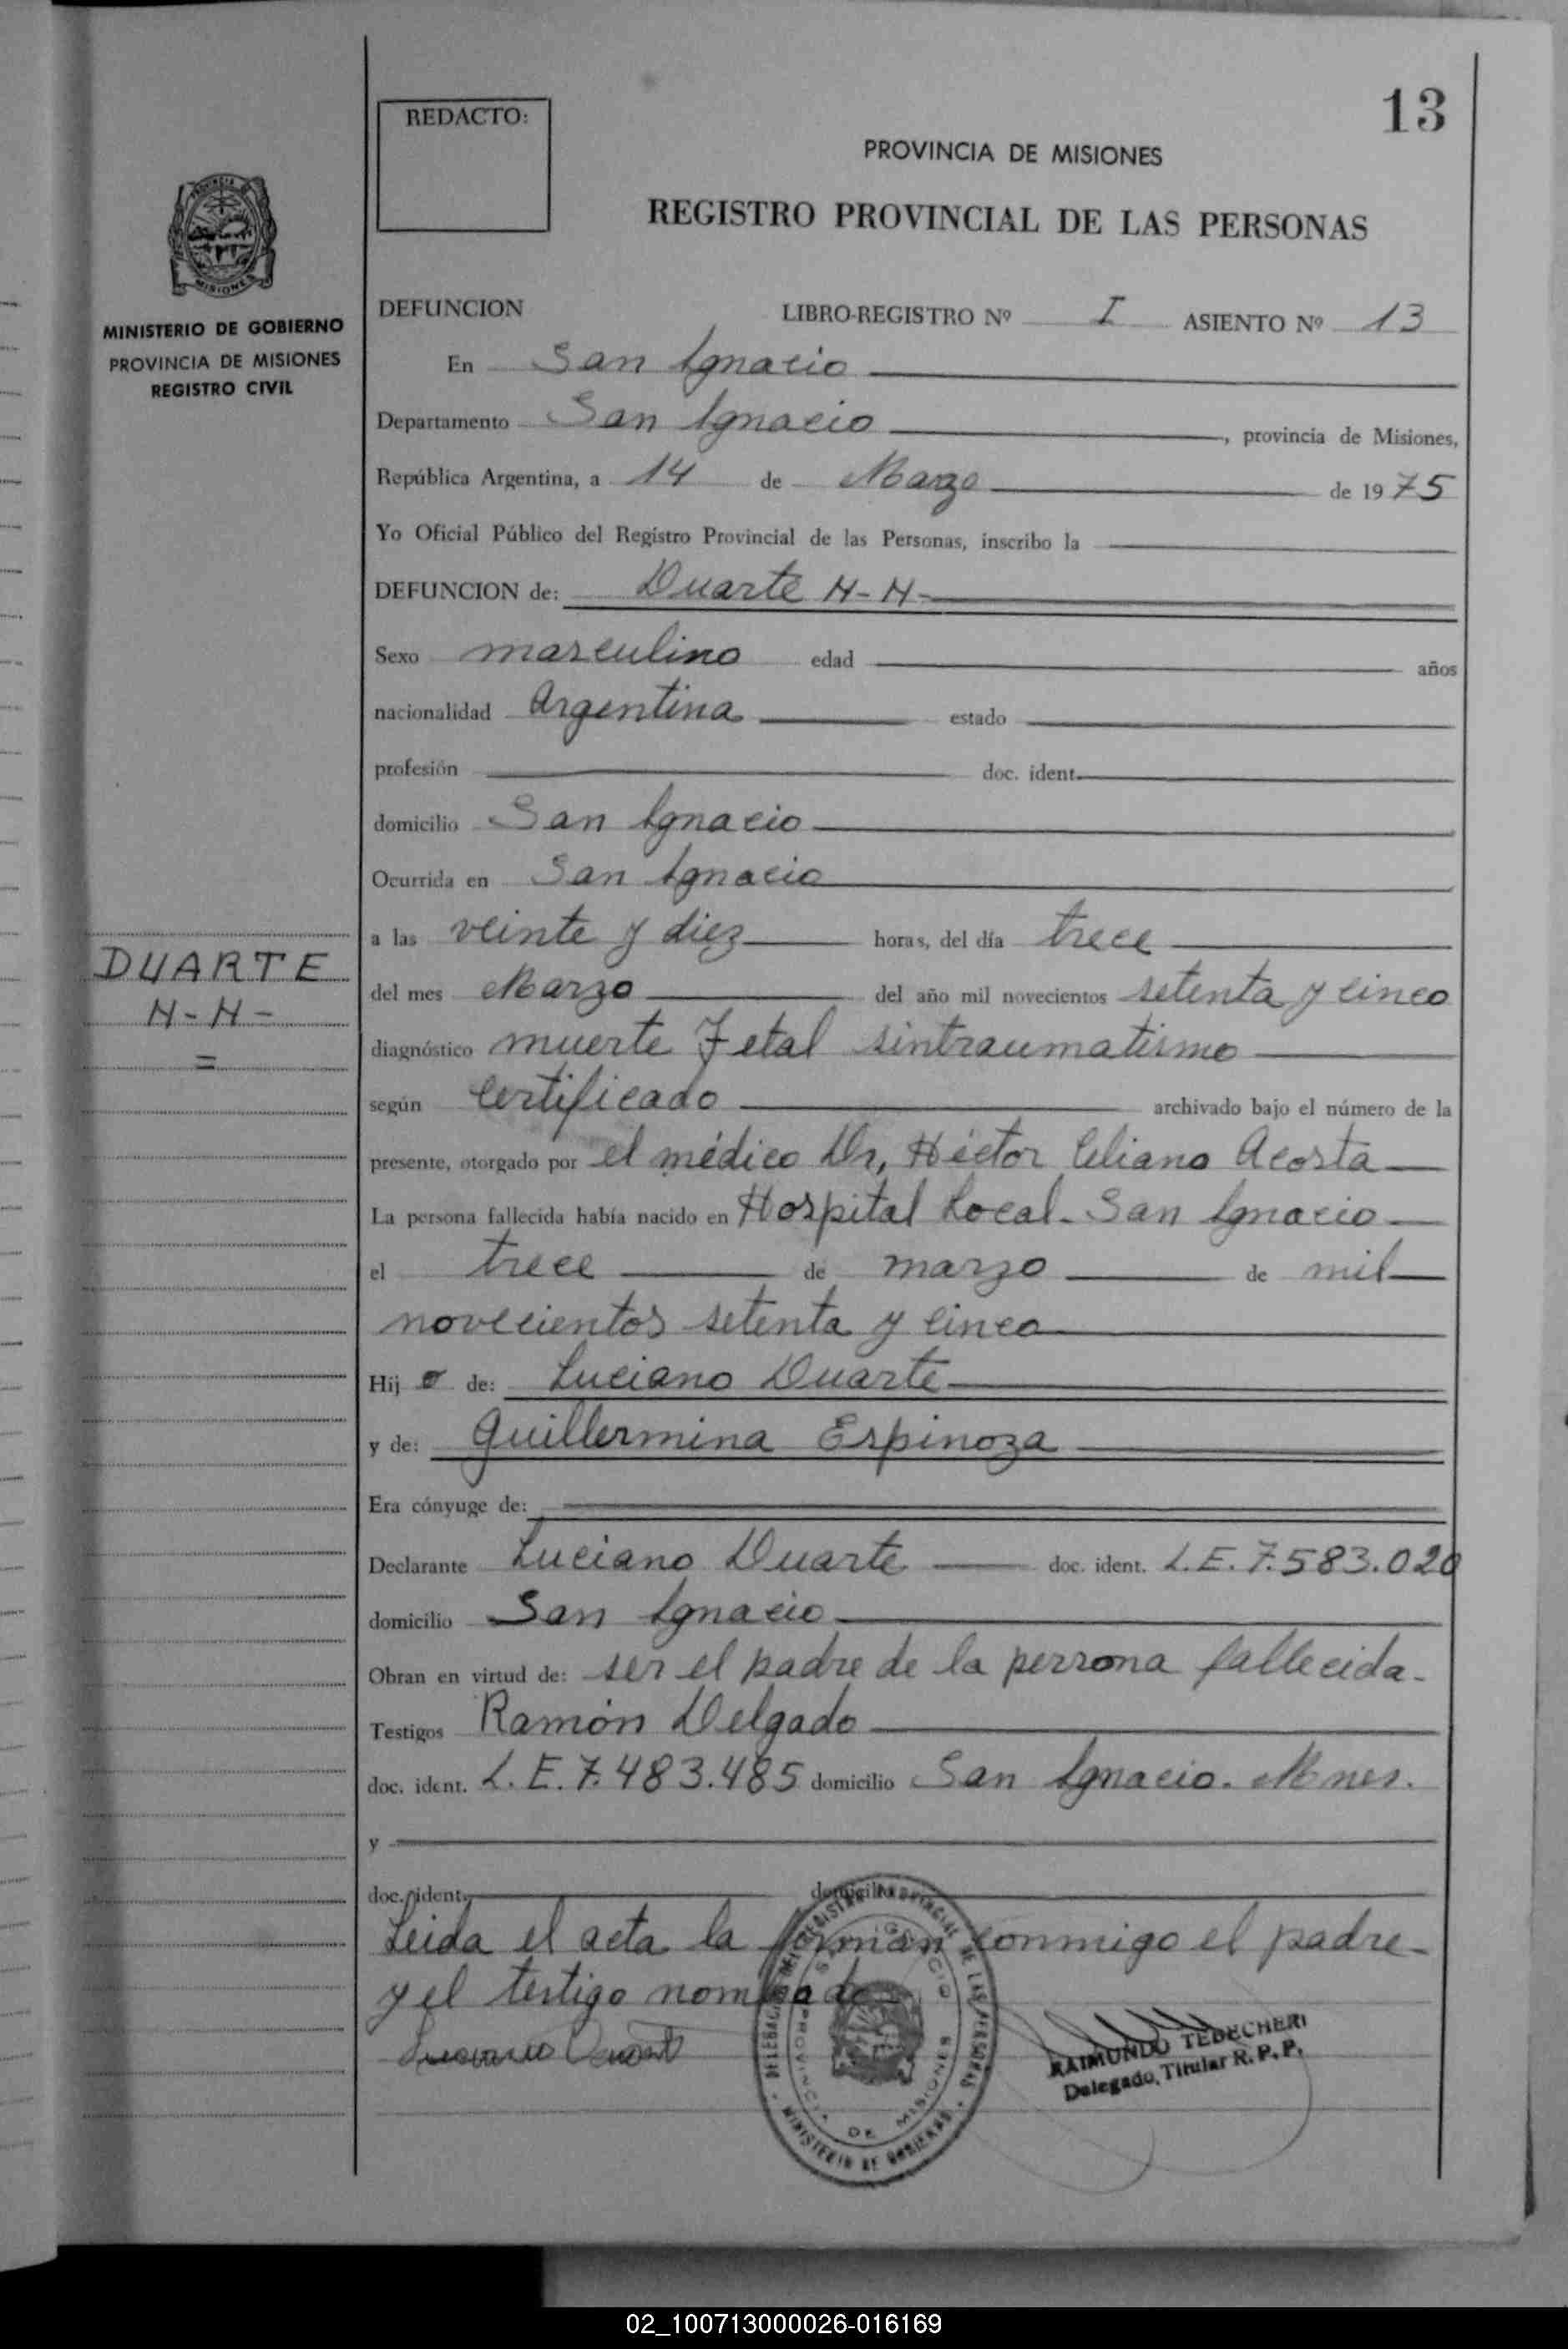 13
REDACTO:
PROVINCIA DE MISIONES
REGISTRO PROVINCIAL DE LAS PERSONAS
MISIONES
MINISTERIO DE GOBIERNO
PROVINCIA DE MISIONES
REGISTRO CIVIL
DEFUNCION LIBRO-REGISTRO Nº I ASIENTO Nº 13
En San Ignacio
Departamento San Ignacio, provincia de Misiones,
República Argentina, a 14 de Marzo de 1975
Yo Oficial Público del Registro Provincial de las Personas, inscribo la
DEFUNCION de: Duarte N-N-
Sexo masculino edad años
nacionalidad Argentina estado
profesión doc. ident.
domicilio San Ignacio
Ocurrida en San Ignacio
a las veinte y diez horas, del día trece
DUARTE
N-N-
=
del mes Marzo del año mil novecientos setenta y cinco
diagnóstico muerte Fetal sintraumatismo
según Certificado archivado bajo el número de la
presente, otorgado por el médico Dr, Héctor Celiano Acosta
La persona fallecida había nacido en Hospital Local - San Ignacio
el trece de marzo de mil
novecientos setenta y cinco
Hijo de: Luciano Duarte
y de: Guillermina Espinoza
Era cónyuge de:
Declarante Luciano Duarte doc. ident. L.E. 7.583.020
domicilio San Ignacio
Obran en virtud de: ser el padre de la persona fallecida-
Testigos Ramón Delgado
doc. ident. L.E. 7.483.485 domicilio San Ignacio. Mnes.
y
doc. ident. domicilio
Leida el acta la forman conmigo el padre-
y el testigo nombrado
Luciano Duarte
DELEGACION DEL REGISTRO PROVINCIAL DE LAS PERSONAS
SAN IGNACIO
PROVINCIA DE MISIONES
MINISTERIO DE GOBIERNO
RAIMUNDO TEDECHERI
Delegado, Titular R. P. P.
02_100713000026-016169